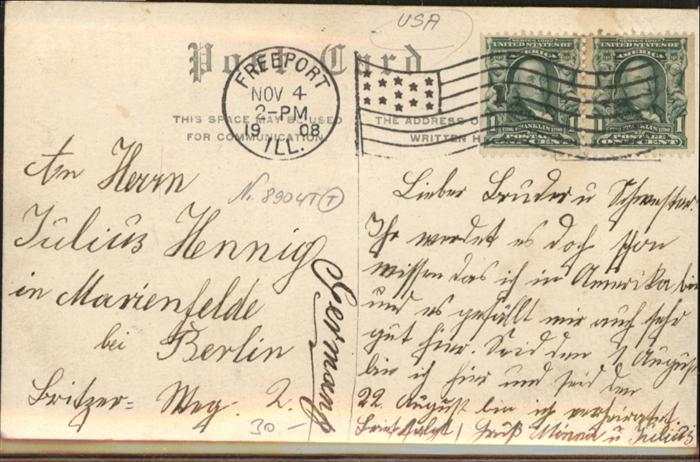 USA
Post Card
FREEPORT
NOV 4
2-PM
1908
ILL.
THIS SPACE MAY BE USED
FOR COMMUNICATION
THE ADDRESS
WRITTEN H
SERIES 1902
UNITED STATES OF
AMERICA
FRANKLIN
1 1
POSTAGE
ONE CENT
SERIES 1902
UNITED STATES OF
AMERICA
FRANKLIN
1 1
POSTAGE
ONE CENT
An Herrn
N. 8904T T
Julius Hennig
in Marienfelde
bei Berlin
Germany
Britzer= Weg. 2.
30.-
Lieber Bruder u Schwester
Ihr werdet es doch schon
wissen das ich in Amerika bin
und es gefällt mir auch sehr
gut hier. Seid den 7 August
bin ich hier und seid den
22. August bin ich verheiratet.
Brief folgt! Gruß Minna u Julius